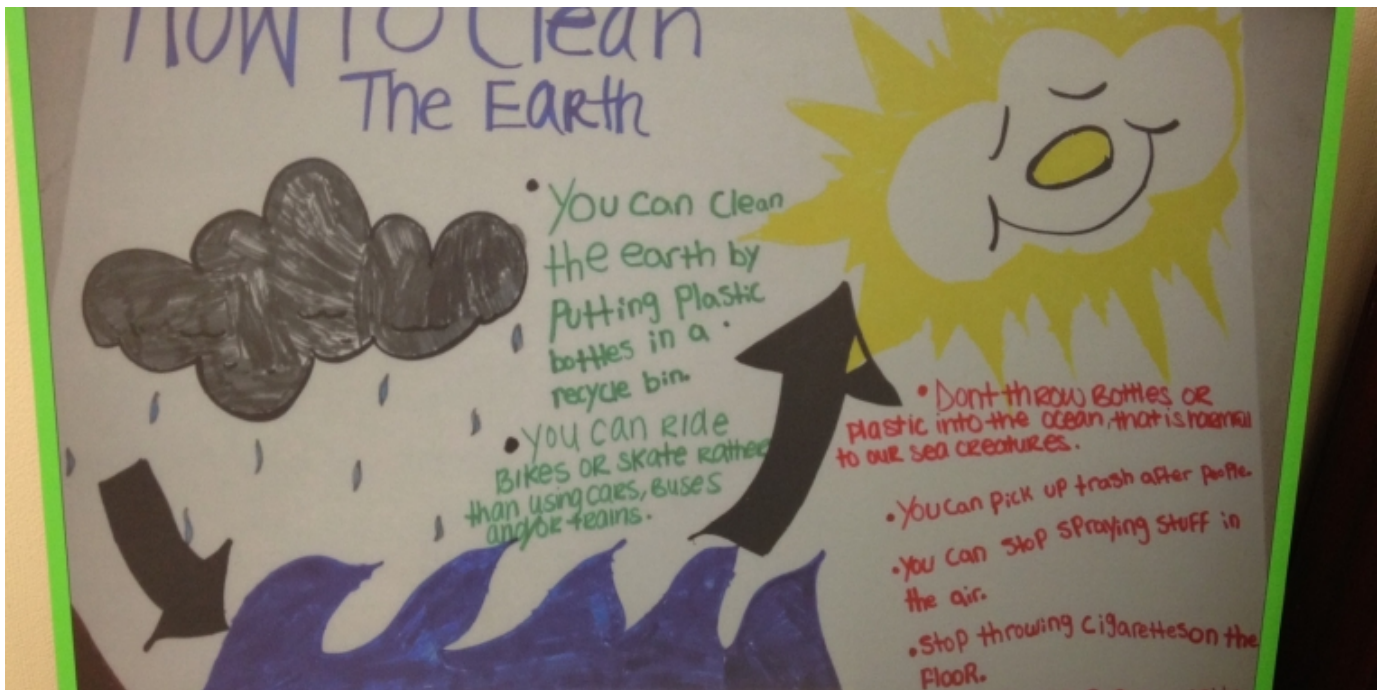 How To Clean
The Earth
• You can clean
the earth by
Putting Plastic
bottles in a
recycle bin.
• you can Ride
Bikes or skate Rather
than using cars, Buses
and/or trains.
• Dont throw Bottles or
plastic into the ocean, that is harmful
to our sea creatures.
• You can pick up trash after people.
• You can stop spraying stuff in
the air.
• Stop throwing cigarettes on the
Floor.